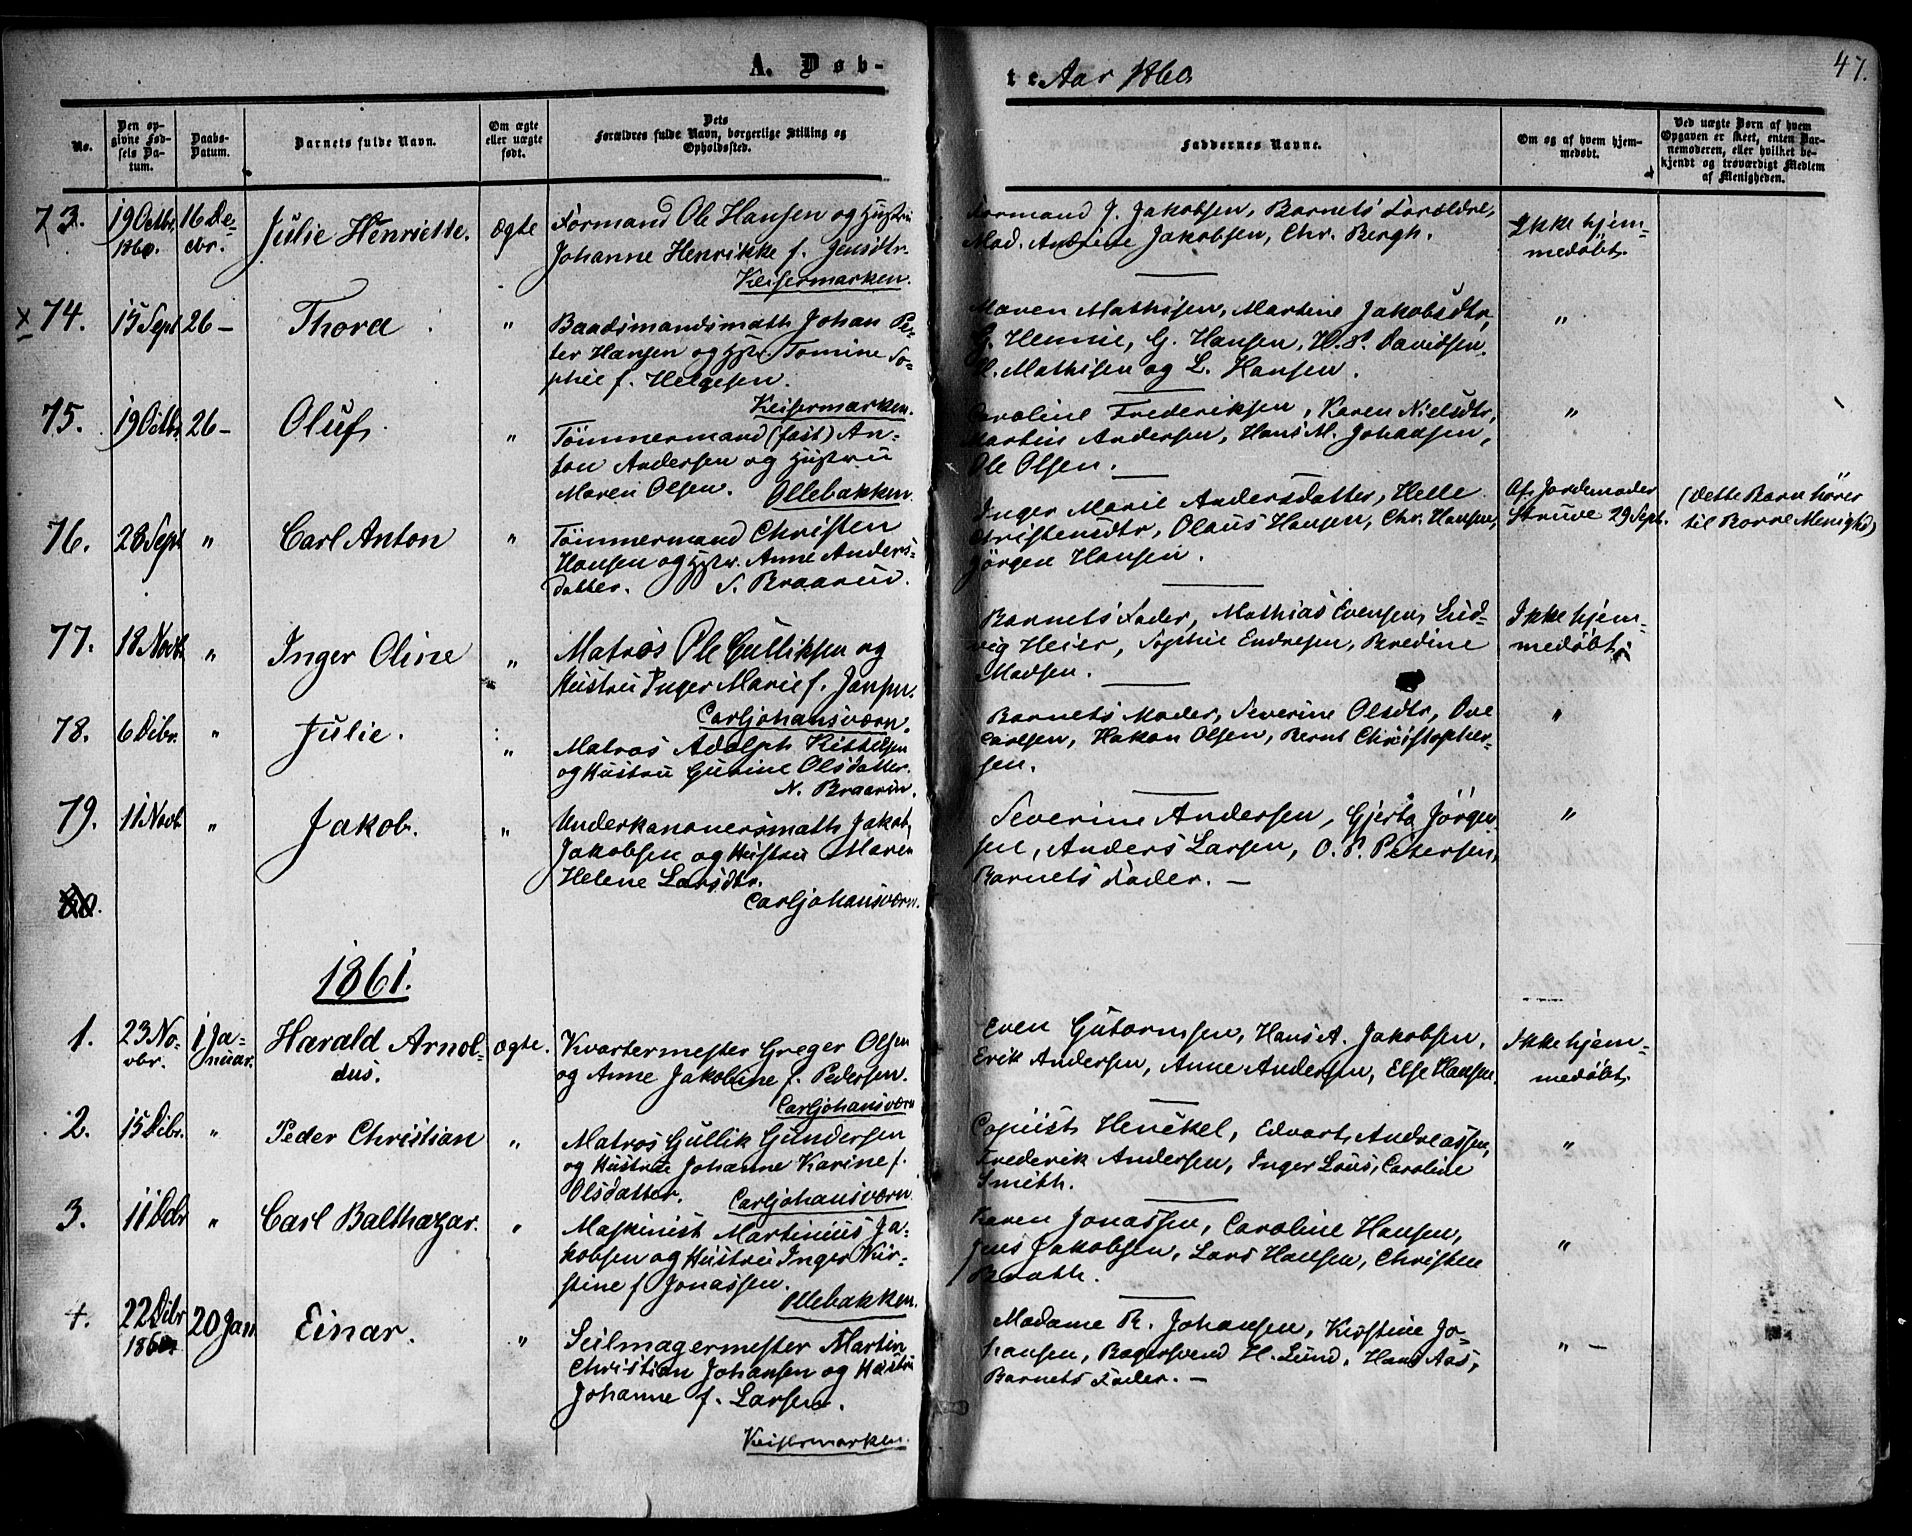 A. Døb-
te Aar 1860
47.
No.
Den op-
givne Fød-
sels Da-
tum.
Daabs-
Datum.
Barnets fulde Navn.
Om ægte
eller uægte
født.
Dets
Forældres fulde Navn, borgerlige Stilling og
Opholdssted.
Faddernes Navne.
Om og af hvem hjem-
medøbt.
Ved uægte Børn af hvem
Opgaven er skeet, enten Bar-
nemoderen, eller hvilket be-
kjendt og troværdigt Medlem
af Menigheden.
73.
19 Octbr.
1860.
16 De-
cbr.
Julie Henriette.
ægte
Formand Ole Hansen og Hustru
Johanne Henrikke f. Jensdtr.
Keisermarken.
Formand J. Jakobsen, Barnets Forældre,
Mad. Andrine Jakobsen, Chr. Bergh.
Ikke hjem-
medøbt.
x 74.
15 Sept
26 -
Thora
"
Baadsmandsmath Johan Pe-
ter Hansen og Hstr. Tomine So-
phie f. Helgesen.
Keisermarken.
Maren Mathisen, Martine Jakobsdtr,
G. Hennie, G. Hansen, H. P. Davidsen
Mathisen og L. Hansen.
"
75.
19 Octbr
26 -
Oluf.
"
Tømmermand (fast) An-
ton Andersen og Hustru
Maren Olsen. Ollebakken
Caroline Frederiksen, Karen Nielsdtr,
Martin Andersen, Hans M. Johansen,
Ole Olsen.
"
76.
28 Sept
"
Carl Anton
"
Tømmermand Christen
Hansen og Hstr. Anne Anders-
datter. S. Braarud.
Inger Marie Andersdatter, Helle
Christensdtr, Olaus Hansen, Chr. Hansen,
Jørgen Hansen.
Af Jordemoder
Struve 29 Sept.
(dette Barn hører
til Borre Menighd)
77.
18 Novb.
"
Inger Oline
"
Matros Ole Gulliksen og
Hustru Inger Marie f. Jansen.
Carljohansværn.
Barnets Fader, Mathias Evensen, Lud-
vig Heier, Sophie Endresen, Bredine
Madsen.
Ikke hjem-
medøbt.
78.
6 Dcbr.
"
Julie.
"
Matros Adolph Kittelsen
og Hustru Gurine Olsdatter.
N. Braarud.
Barnets Moder, Severine Olsdtr, Ove
Carlsen, Hakon Olsen, Bernt Christopher-
sen.
"
79.
11 Novb.
"
Jakob.
"
Underkanonersmath Jakob
Jakobsen og Hustru Maren
Helene Larsdtr.
Carljohansværn.
Severine Andersen, Gjerta Jørgen-
sen, Anders Larsen, O. P. Petersen,
Barnets Fader. -
"
80.
1861.
1.
23 No-
vbr.
1 Ja-
nuar.
Harald Arnol-
dus.
ægte.
Kvartermester Greger Olsen
og Anne Jakobine f. Pedersen.
Carljohansværn
Even Gutormsen, Hans A. Jakobsen,
Erik Andersen, Anne Andersen, Else Hansen.
Ikke hjem-
medøbt.
2.
15 Dcbr.
"
Peder Christian
"
Matros Gullik Gundersen
og Hustru Johanne Karine f.
Olsdatter. Carljohansværn
Copiist Henckel, Edvart Andreassen,
Frederik Andersen, Inger Lous, Caroline
Smith.
"
3.
11 Dcbr
"
Carl Balthazar.
"
Maskinist Martinius Ja-
kobsen og Hustru Inger Kir-
stine f. Jonassen.
Ollebakken.
Karen Jonassen, Caroline Hansen,
Jens Jakobsen, Lars Hansen, Christen
Baath.
"
4.
22 Dcbr
1860
20 Jan
Einar.
"
Seilmagermester Martin
Christian Johansen og Hustru
Johanne f. Larsen.
Keisermarken.
Madame R. Johansen, Kirstine Jo-
hansen, Bagersvend H. Lund, Hans Aas,
Barnets Fader. -
" -